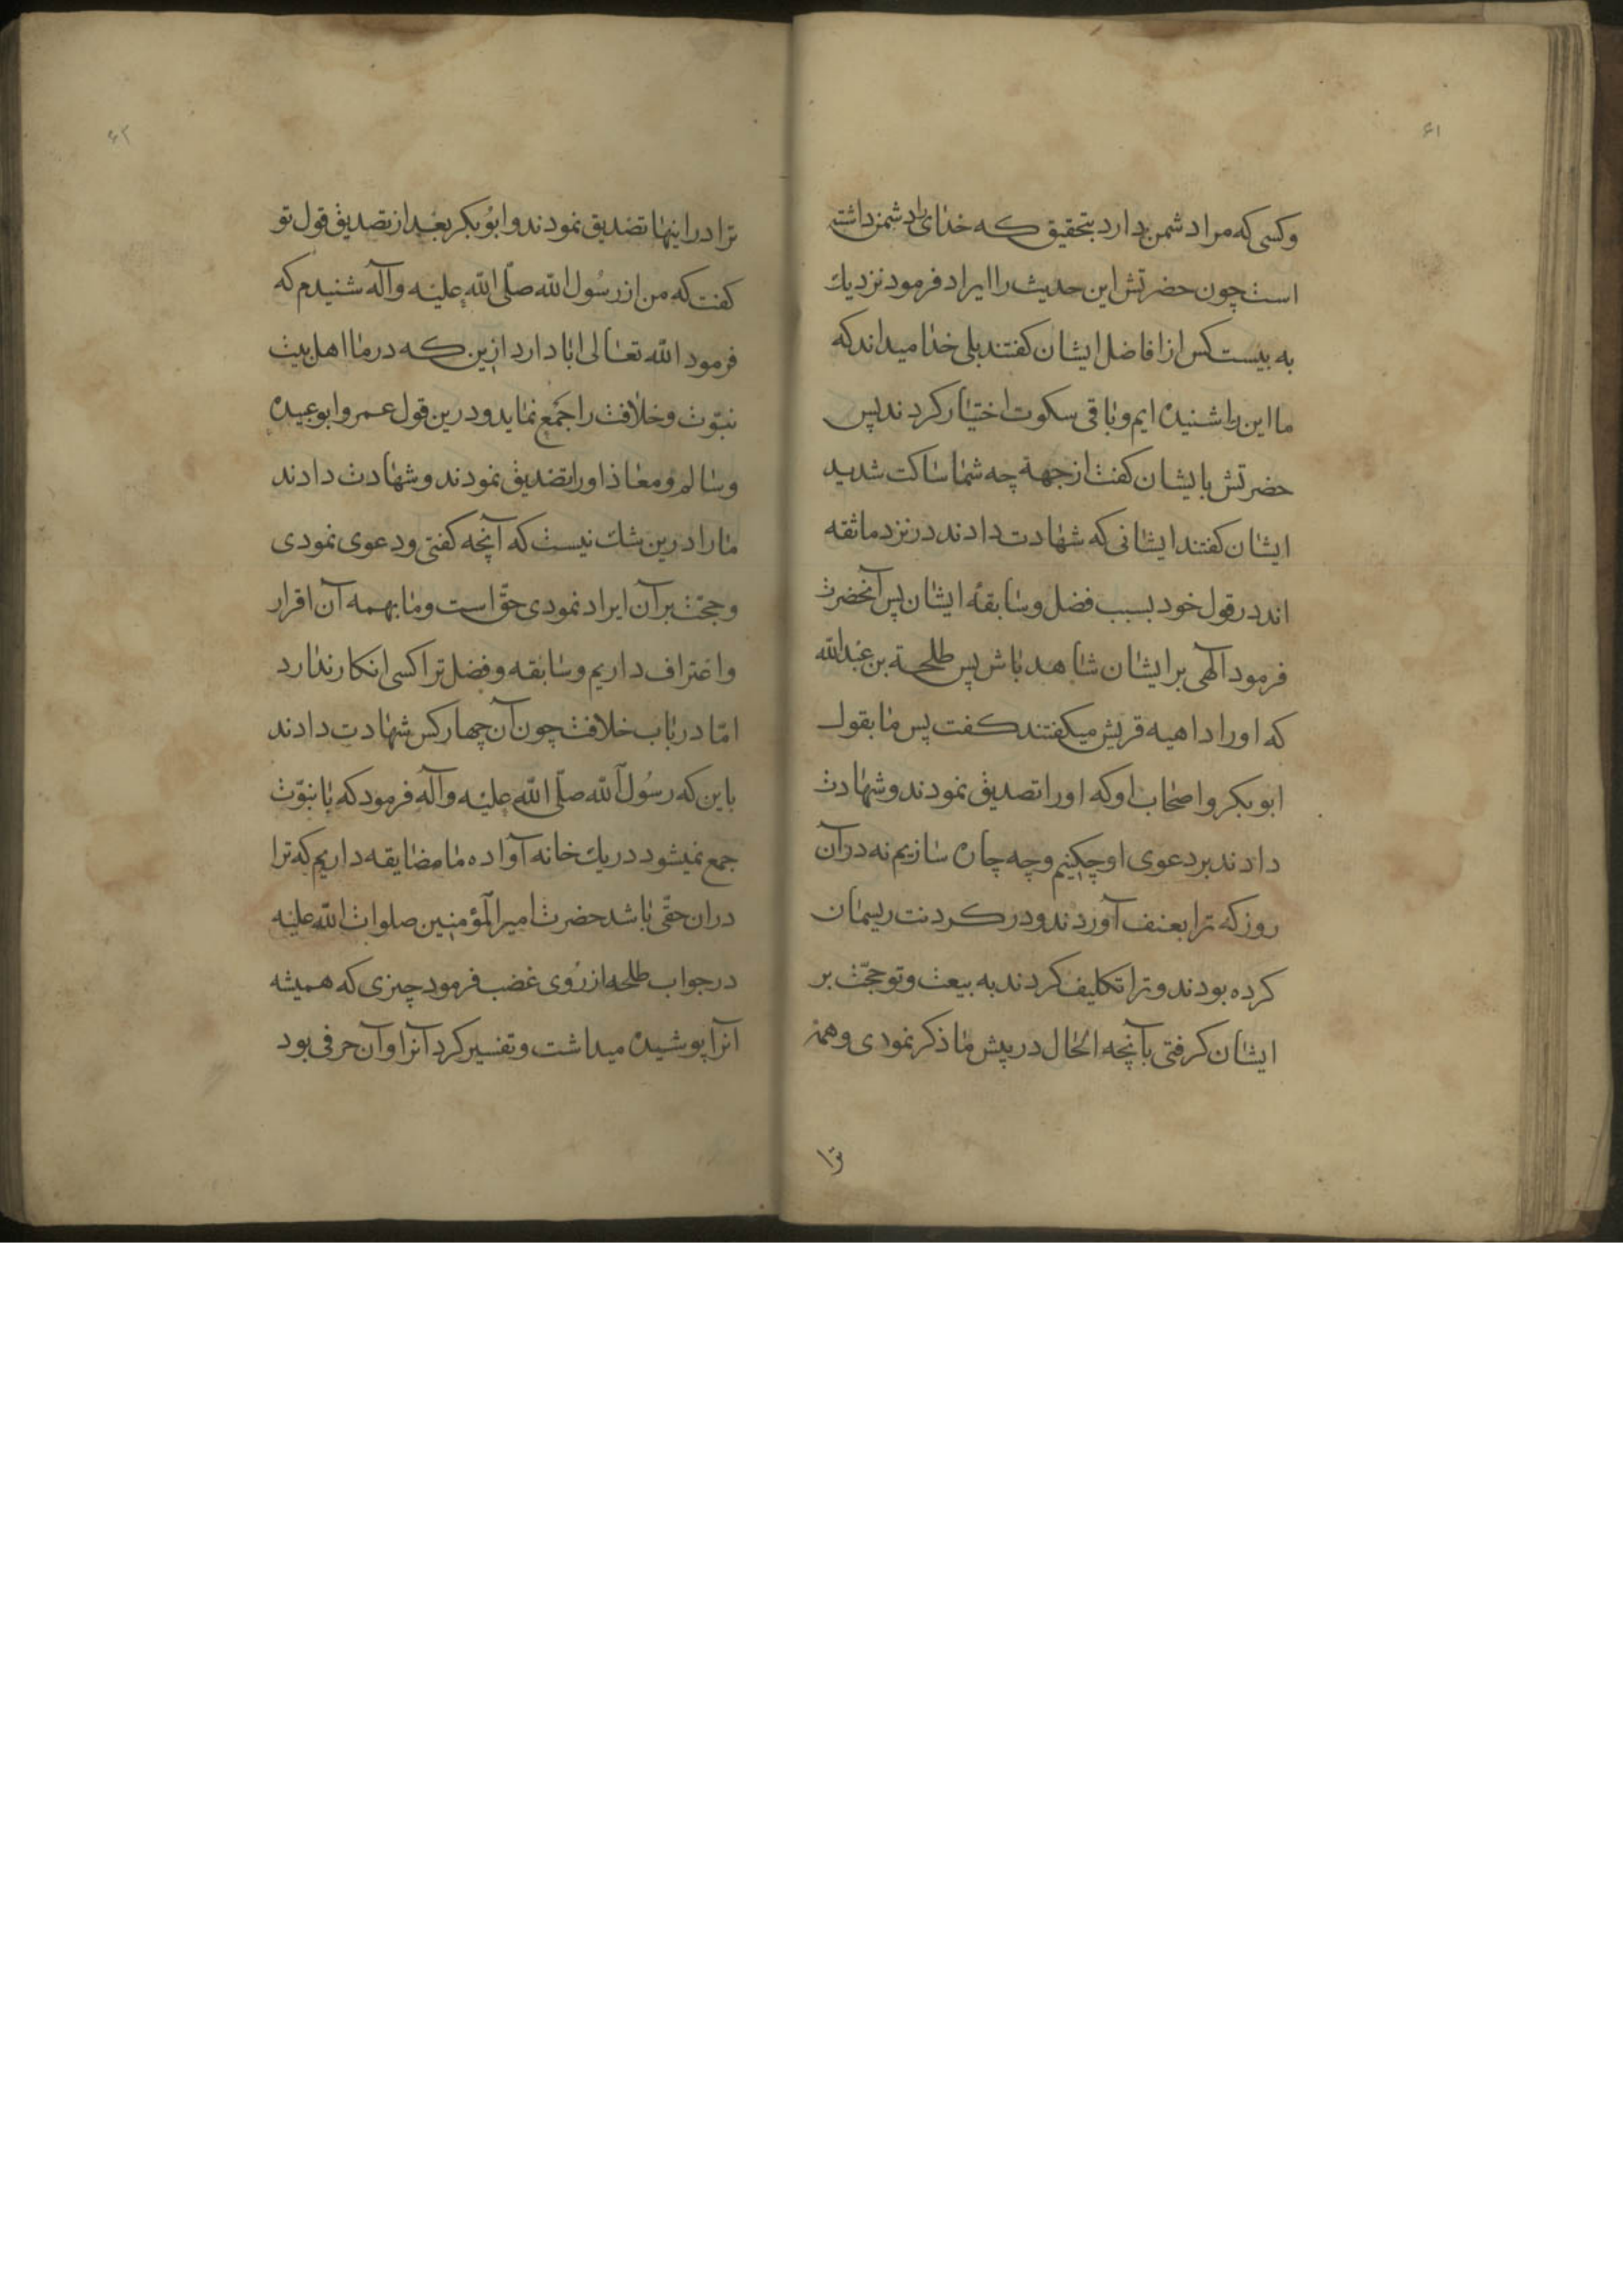 ۶۱
وکسی که مرا دشمن دارد بتحقیق که خدای را دشمن داشته
است چون حضرتش این حدیث را ایراد فرمود نزدیك
به بیست کس از افاضل ایشان کفتند بلی خدا میداند که
ما این را شنیده ایم و باقی سکوت اختیار کردند پس
حضرتش بایشان کفت از جهة چه شما ساکت شدید
ایشان کفتند ایشانی که شهادت دادند در نزد ما ثقه
اند در قول خود بسبب فضل و سابقهٔ ایشان پس آنحضرت
فرمود آلهی بر ایشان شاهد باش پس طلحة بن عبدالله
که او را داهیه قریش میکفتند کفت پس ما بقول
ابو بکر و اصحاب او که او را تصدیق نمودند و شهادت
دادند بر دعوی او چکنیم و چه چاره سازیم نه در آن
روز که ترا بعنف آوردند و در کردنت ریسمان
کرده بودند و ترا تکلیف کردند به بیعت و تو حجّت بر
ایشان کرفتی بآنچه الحال در پیش ما ذکر نمودی و همه
ترا
۶۲
ترا در اینها تصدیق نمودند و ابو بکر بعد از تصدیق قول تو
کفت که من از رسول الله صلّی الله علیه و آله شنیدم که
فرمود الله تعالی ابا دارد ازین که در ما اهل بیت
نبوّت و خلافت را جمع نماید و درین قول عمر و ابو عبیده
و سالم و معاذ او را تصدیق نمودند و شهادت دادند
ما را درین شك نیست که آنچه کفتی و دعوی نمودی
و حجّت بر آن ایراد نمودی حقّ است و ما بهمه آن اقرار
و اعتراف داریم و سابقه و فضل ترا کسی انکار ندارد
امّا در باب خلافت چون آن چهار کس شهادت دادند
باین که رسول الله صلّی الله علیه و آله فرمود که با نبوّت
جمع نمیشود در یك خانه آواده ما مضایقه داریم که ترا
در ان حقّی باشد حضرت امیر المؤمنین صلوات الله علیه
در جواب طلحه از روی غضب فرمود چیزی که همیشه
آنرا پوشیده میداشت و تفسیر کرد آنرا و آن حرفی بود